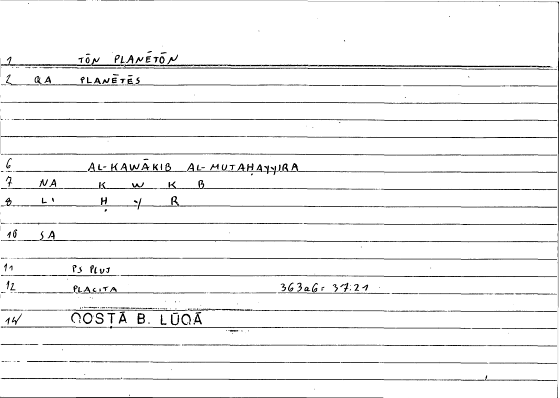 1 TŌN PLANĒTŌN
2 QA PLANĒTĒS
6 AL-KAWĀKIB AL-MUTAḤAYYIRA
7 NA K W K B
8 LI Ḥ Y R
10 SA
11 PS PLUT
12 PLACITA 363a6 = 37.21
14 QOSṬĀ B. LŪQĀ